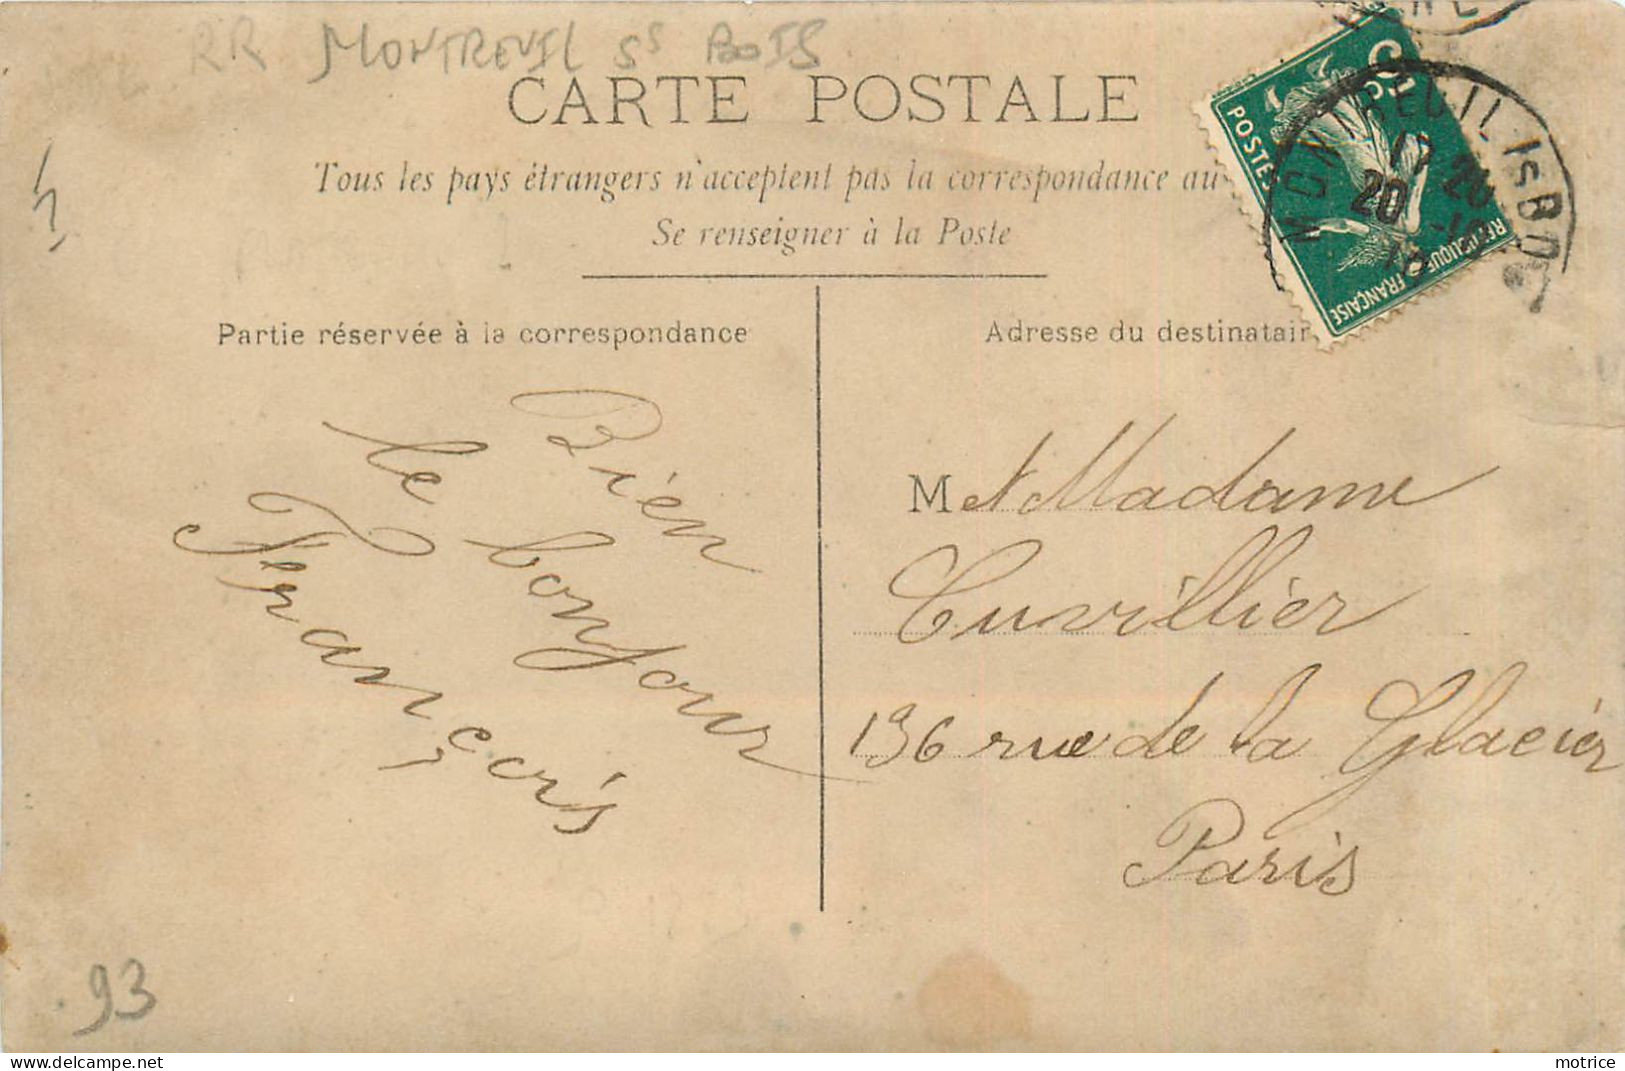 RR MONTREUIL SS BOIS
CARTE POSTALE
Tous les pays étrangers n'acceptent pas la correspondance au
Se renseigner à la Poste
5c
POSTES
REPUBLIQUE FRANÇAISE
MONTREUIL-Is-BOIS
17 20
20 -10
Partie réservée à la correspondance
Adresse du destinatair
Bien
le bonjour
François
M et Madame
Cuvillier
136 rue de la Glacier
Paris
93
motrice